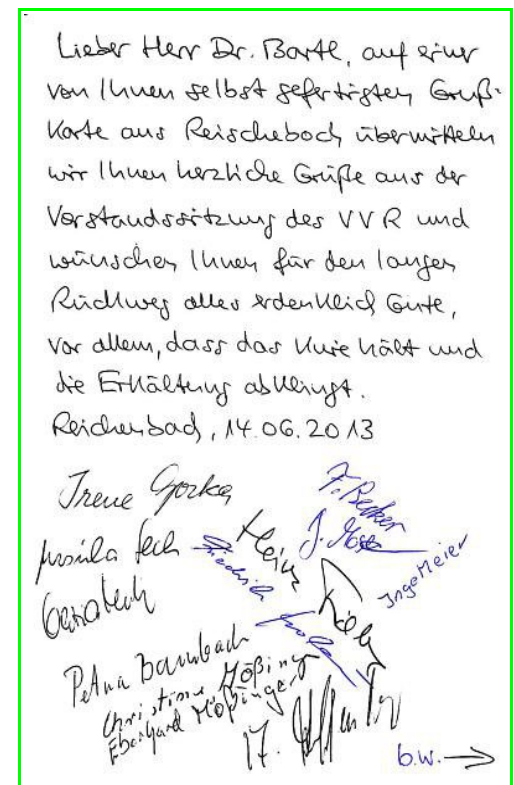 Lieber Herr Dr. Bartl, auf einer
von Ihnen selbst gefertigten Gruß-
karte aus Reischebach übermitteln
wir Ihnen herzliche Grüße aus der
Vorstandssitzung des VVR und
wünschen Ihnen für den langen
Rückweg alles erdenklich Gute,
vor allem, dass das Knie hält und
die Erkältung abklingt.
Reichenbach, 14.06.2013
Irene Gorka
F. Becker
J.
Ursula Lech
Heinz
Friedrich
Inge Meier
Petra Baumbach
Christine Mößinger
Eberhard Mößinger
b.w. →